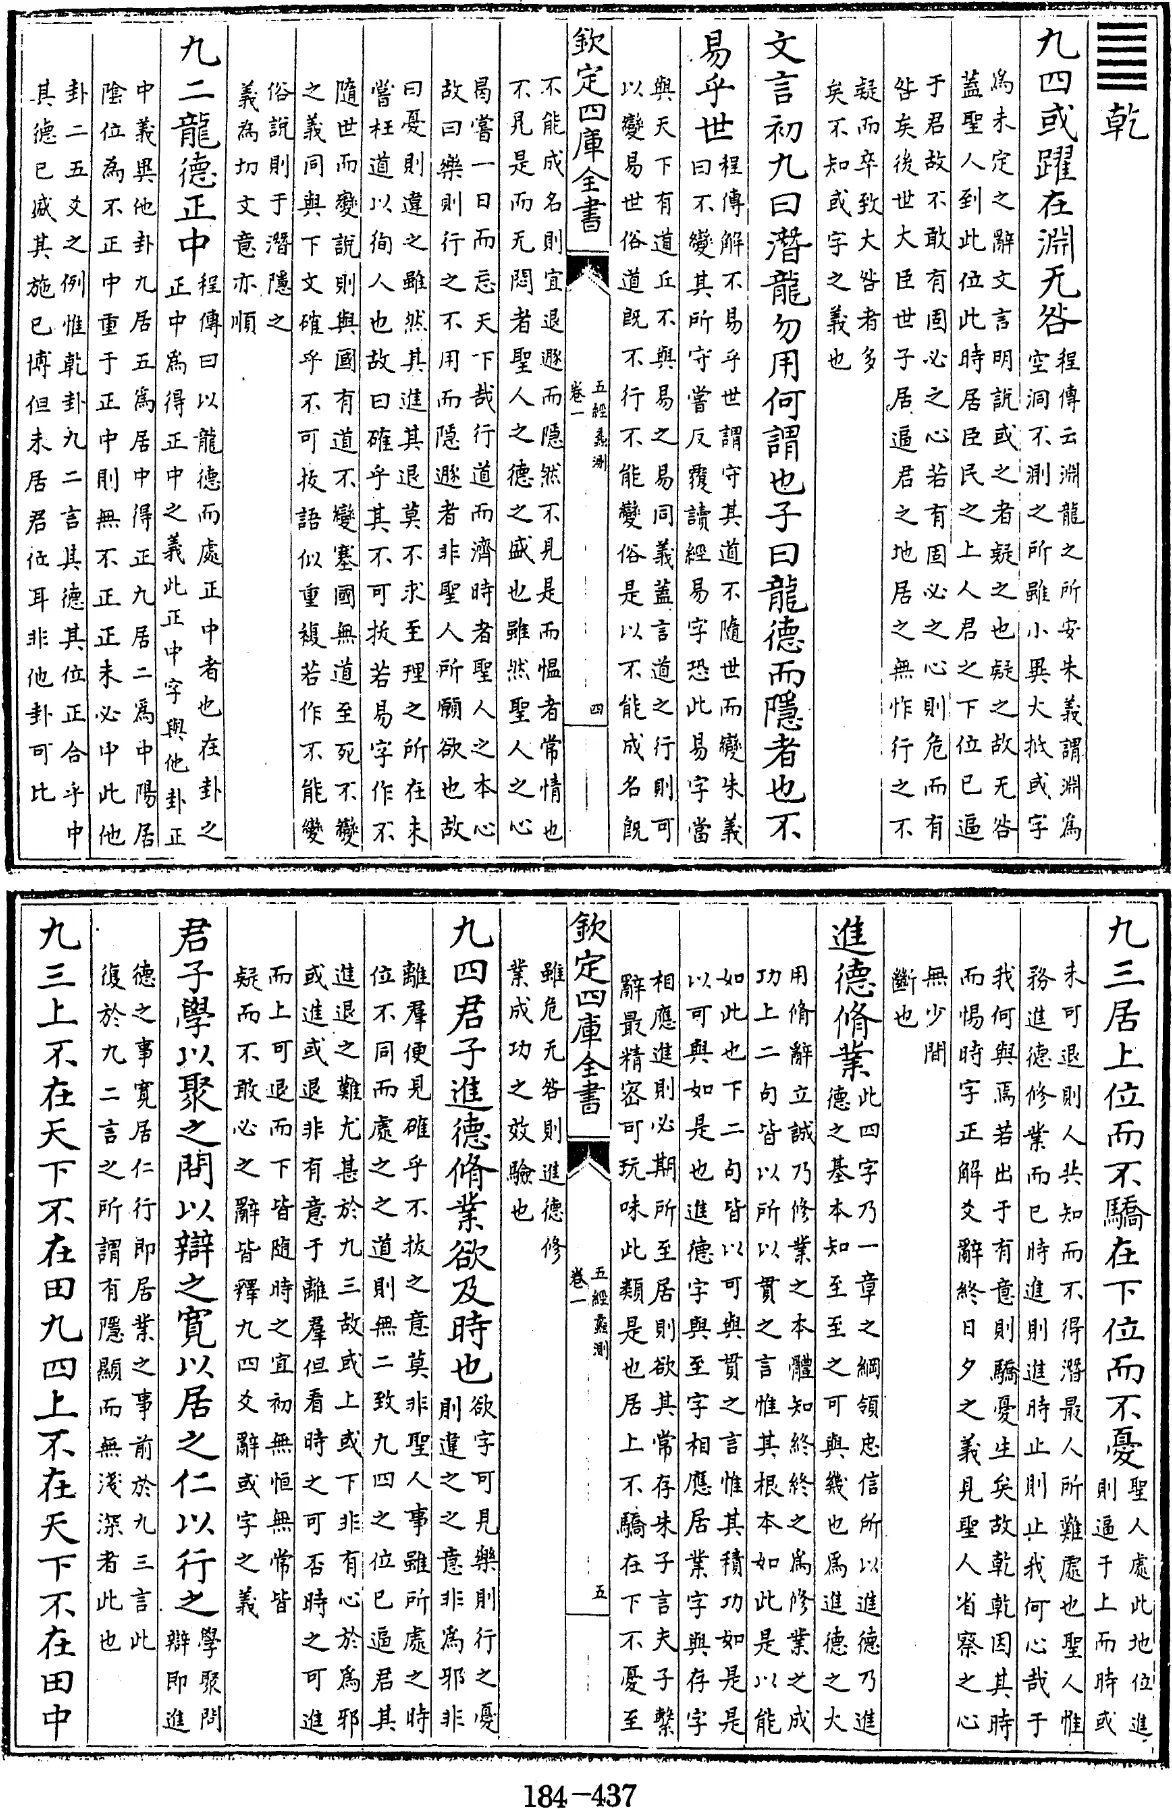 ䷀乾
九四或躍在淵无咎
程傳云淵龍之所安朱義謂淵爲
空洞不測之所雖小異大抵或字
爲未定之辭文言明說或之者疑之也疑之故无咎
蓋聖人到此位此時居臣民之上人君之下位已逼
于君故不敢有固必之心若有固必之心則危而有
咎矣後世大臣世子居逼君之地居之無怍行之不
疑而卒致大咎者多
矣不知或字之義也
文言初九曰潛龍勿用何謂也子曰龍德而隱者也不
易乎世
程傳解不易乎世謂守其道不隨世而變朱義
曰不變其所守嘗反覆讀經易字恐此易字當
與天下有道丘不與易之易同義蓋言道之行則可
以變易世俗道既不行不能變俗是以不能成名既
欽定四庫全書
五經蠡測
卷一
四
不能成名則宜退遯而隱然不見是而愠者常情也
不見是而无悶者聖人之德之盛也雖然聖人之心
曷嘗一日而忘天下哉行道而濟時者聖人之本心
故曰樂則行之不用而隱遯者非聖人所願欲也故
曰憂則違之雖然其進其退莫不求至理之所在未
嘗枉道以徇人也故曰確乎其不可拔若易字作不
隨世而變說則與國有道不變塞國無道至死不變
之義同與下文確乎不可拔語似重複若作不能變
俗說則于潛隱之
義為切文意亦順
九二龍德正中
程傳曰以龍德而處正中者也在卦之
正中爲得正中之義此正中字與他卦正
中義異他卦九居五爲居中得正九居二爲中陽居
陰位為不正中重于正中則無不正正未必中此他
卦二五爻之例惟乾卦九二言其德其位正合乎中
其德已盛其施已博但未居君位耳非他卦可比
九三居上位而不驕在下位而不憂
聖人處此地位進
則逼于上而時或
未可退則人共知而不得潛最人所難處也聖人惟
務進德修業而已時進則進時止則止我何心哉于
我何與焉若出于有意則驕憂生矣故乾乾因其時
而惕時字正解爻辭終日夕之義見聖人省察之心
無少間
斷也
進德脩業
此四字乃一章之綱領忠信所以進德乃進
德之基本知至至之可與幾也爲進德之大
用脩辭立誠乃修業之本體知終終之爲修業之成
功上二句皆以所以貫之言惟其根本如此是以能
如此也下二句皆以可與貫之言惟其積功如是是
以可與如是也進德字與至字相應居業字與存字
相應進則必期所至居則欲其常存朱子言夫子繫
辭最精密可玩味此類是也居上不驕在下不憂至
欽定四庫全書
五經蠡測
卷一
五
雖危无咎則進德修
業成功之效驗也
九四君子進德脩業欲及時也
欲字可見樂則行之憂
則違之之意非爲邪非
離羣便見確乎不拔之意莫非聖人事雖所處之時
位不同而處之之道則無二致九四之位已逼君其
進退之難尤甚於九三故或上或下非有心於爲邪
或進或退非有意于離羣但看時之可否時之可進
而上可退而下皆隨時之宜初無恒無常皆
疑而不敢必之辭皆釋九四爻辭或字之義
君子學以聚之問以辯之寬以居之仁以行之
學聚問
辯即進
德之事寛居仁行即居業之事前於九三言此
復於九二言之所謂有隱顯而無淺深者此也
九三上不在天下不在田九四上不在天下不在田中
184-437